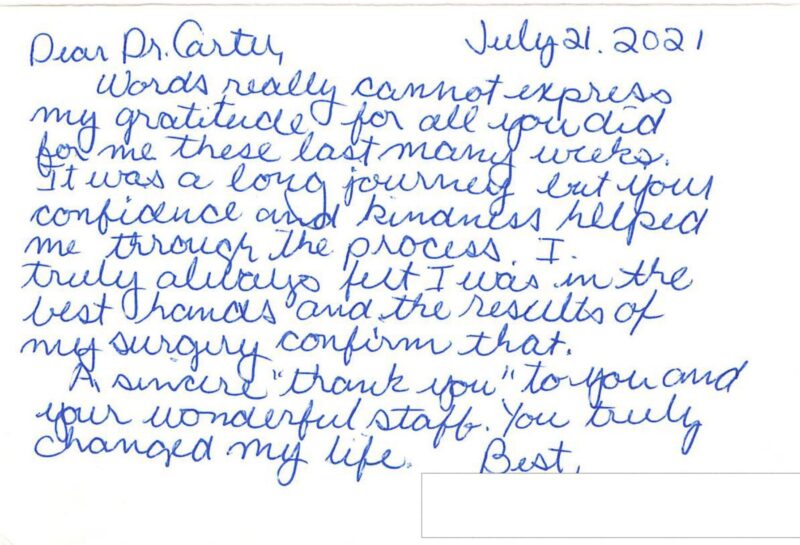 Dear Dr. Carter, July 21. 2021
Words really cannot express
my gratitude for all you did
for me these last many weeks.
It was a long journey but your
confidence and kindness helped
me through the process. I.
truly always felt I was in the
best hands and the results of
my surgery confirm that.
A sincere "thank you" to you and
your wonderful staff. You truly
changed my life. Best,